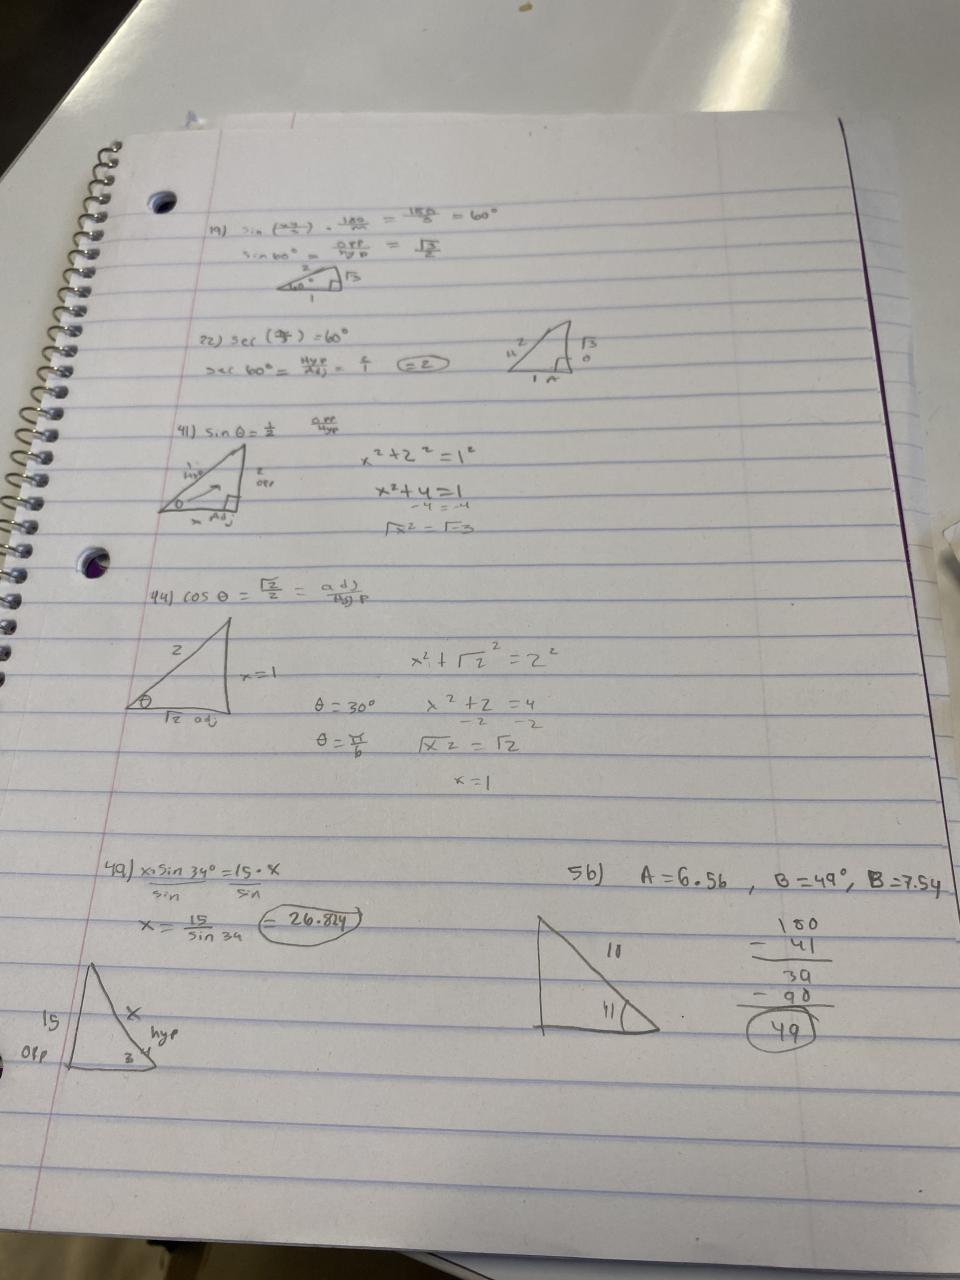 19) sin (π/3) · 180/π = 180/3 = 60°
sin 60° = opp/hyp = √3/2
2
60°
√3
1
22) sec (π/3) = 60°
sec 60° = Hyp/Adj = 2/1 = 2
2
H
√3
O
1 A
41) sin θ = 1/2 opp/Hyp
1
Hyp
2
opp
θ
x Adj
x² + 2² = 1²
x² + 4 = 1
-4 = -4
√x² = √-3
44) cos θ = √2/2 = adj/Hyp
2
x = 1
θ
√2 adj
x² + √2² = 2²
θ = 30° x² + 2 = 4
-2 -2
θ = π/6 √x² = √2
x = 1
49) x·sin 34° = 15·x
sin sin
x = 15/sin 34 = 26.824
15
opp
x
hyp
34
56) A = 6.56 , B = 49°, B = 7.54
10
41
180
- 41
39
- 90
49